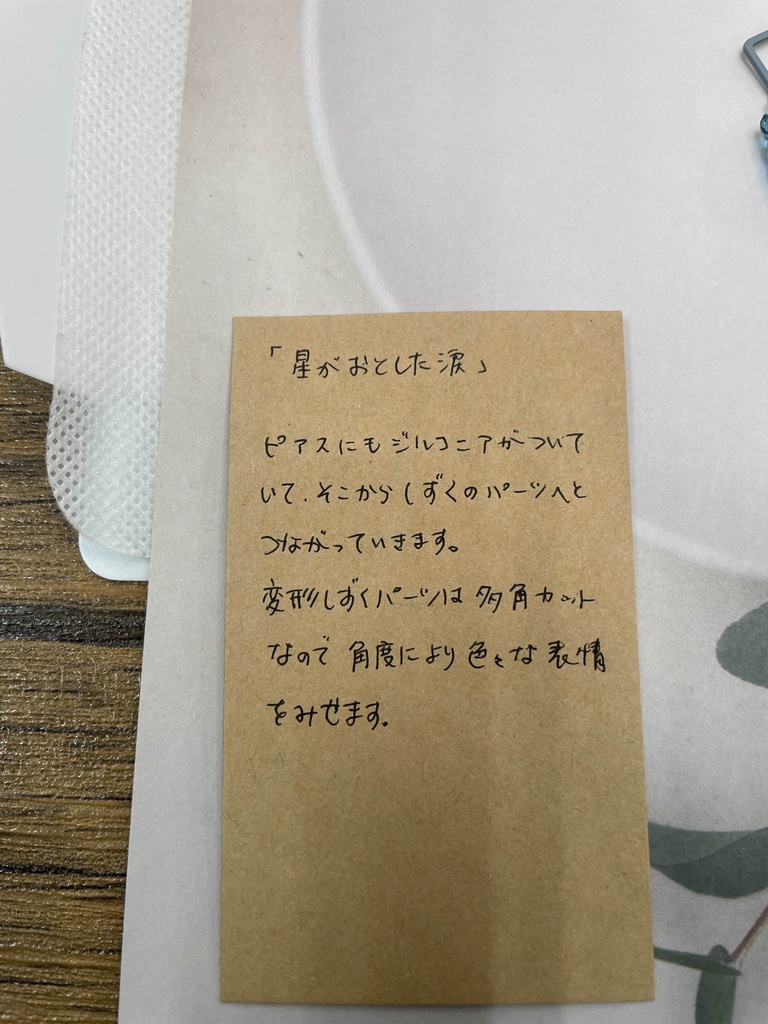 「星がおとした涙」
ピアスにもジルコニアがついて
いて、そこからしずくのパーツへと
つながっていきます。
変形しずくパーツは多角カット
なので角度により色々な表情
をみせます。